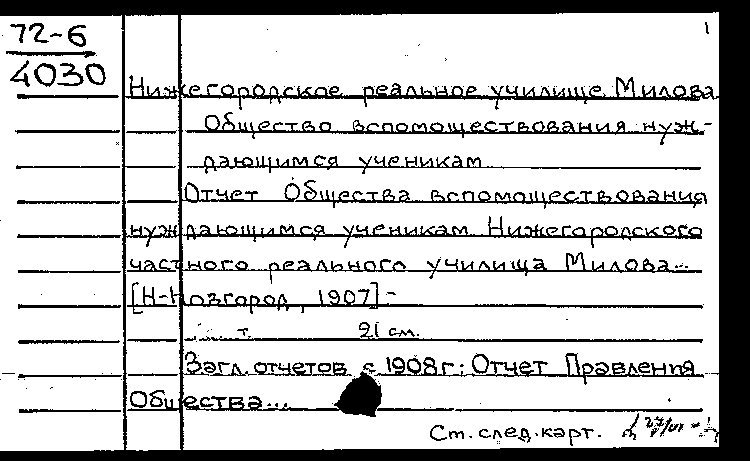 1
72-6
4030
Нижегородское реальное училище Милова
Общество вспомоществования нуж-
дающимся ученикам
Отчет Общества вспомоществования
нуждающимся ученикам Нижегородского
частного реального училища Милова...
[Н-Новгород, 1907]-
т. 21 см.
Загл. отчетов с 1908г: Отчет Правления
Общества...
См. след. карт.